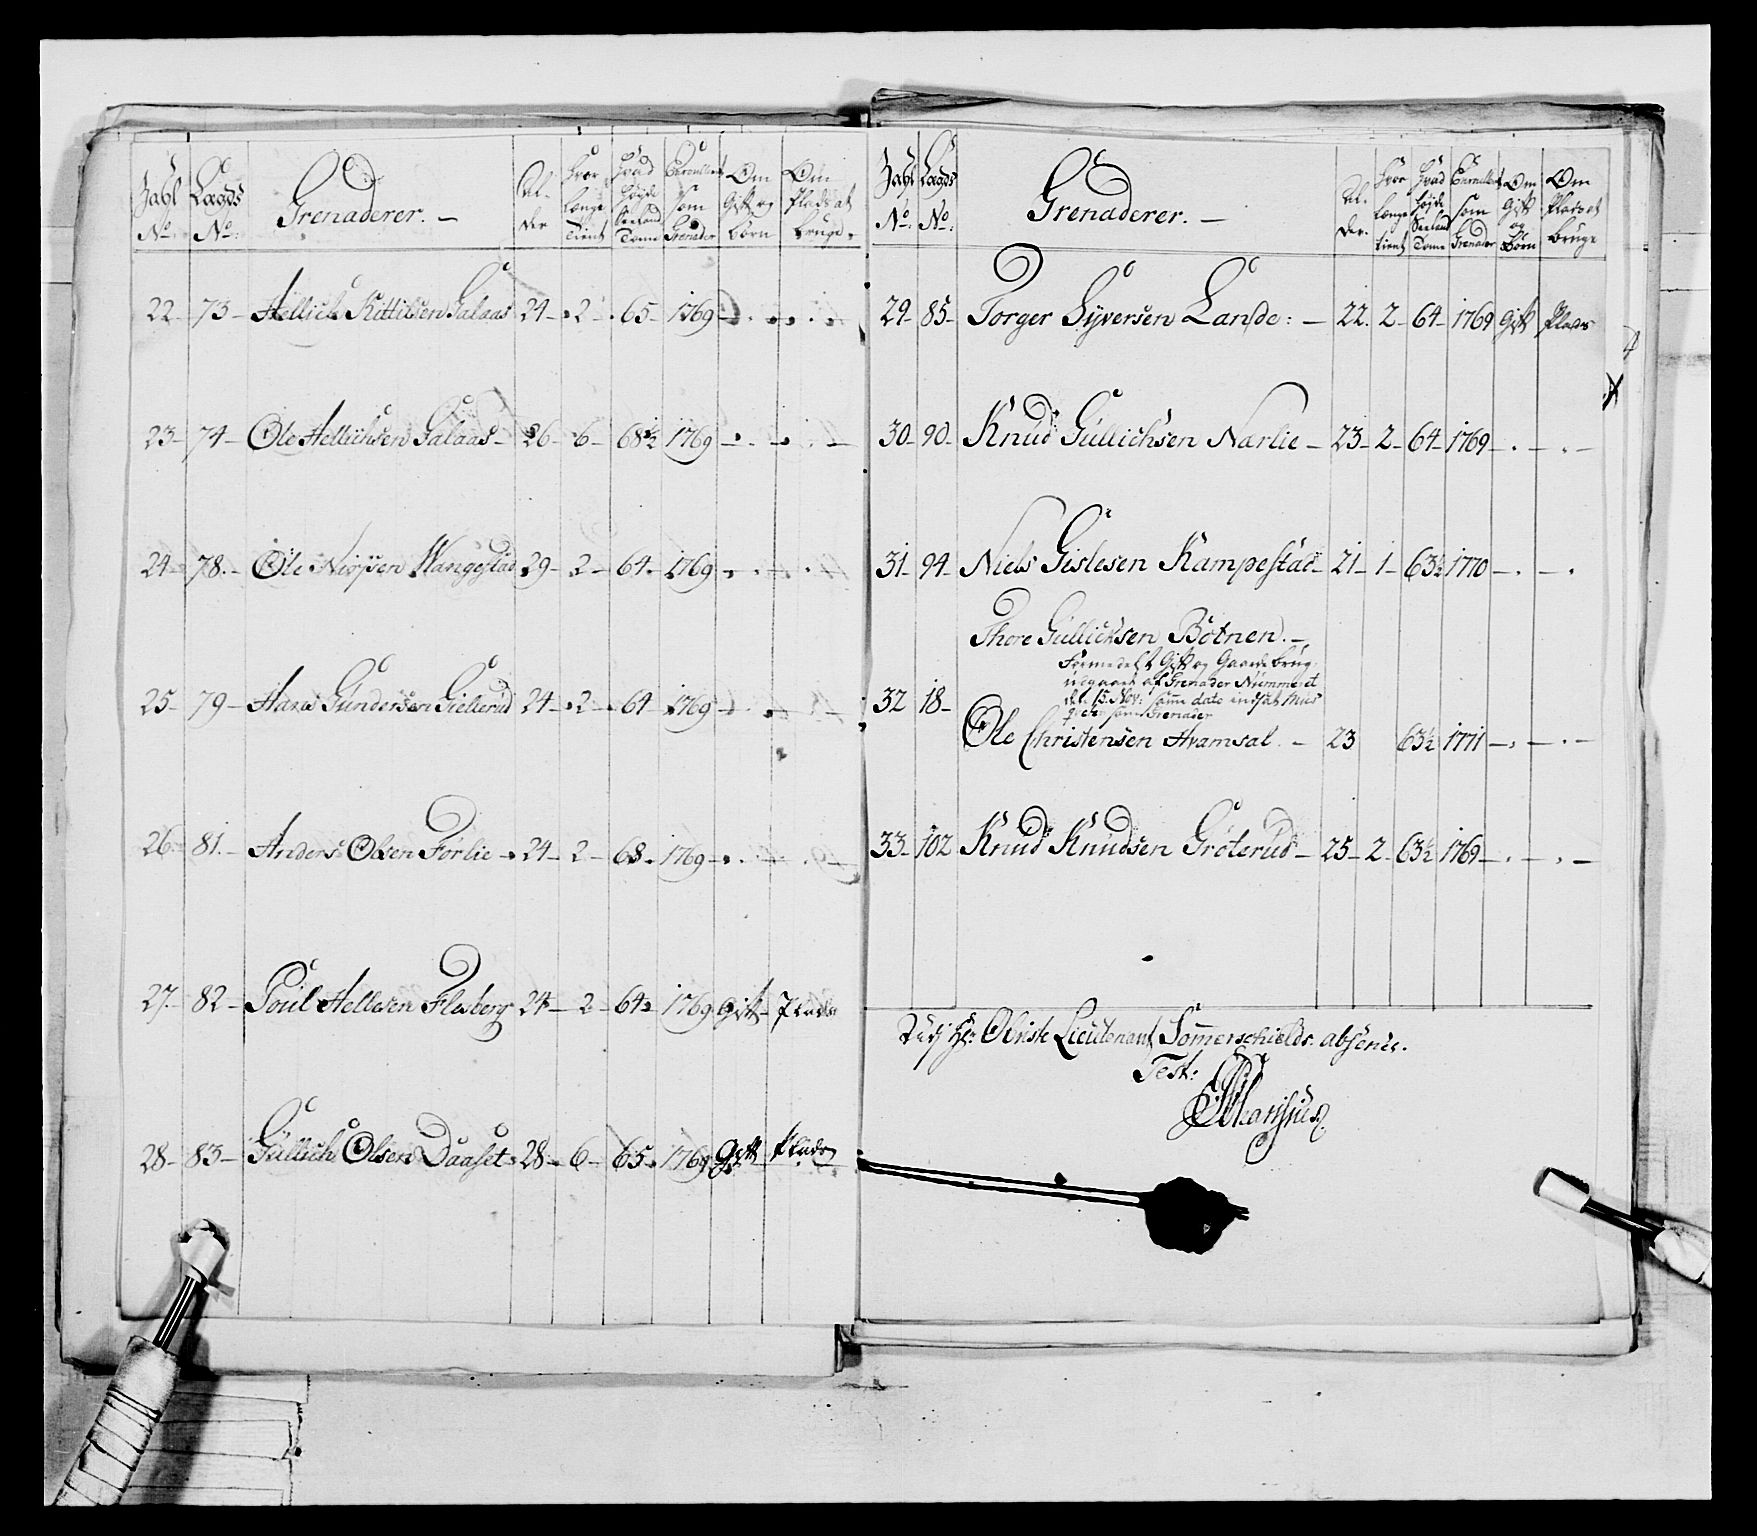 Tahl No. Lægds No. Grenaderer. — Al- der Hvor længe Tient Hvad Høyde Siælland Tome Enroullert som Grenader Om Gift og Børn Om Plads at bruge.
22 - 73 - Hellich Kittilsen Galaas 24 - 2 - 65 - 1769 -
23 - 74 - Ole Hellichsen Galaas - 26 - 6 - 68½ 1769 - . - . -
24 - 78 - Ole Nirisen Wangestad 29 - 2 - 64 - 1769 - . - .
25 - 79 - Hans Gundersen Gielterud 24 - 2 - 64 1769 -
26 - 81 - Anders Olsen Forlie - 24 - 2 - 68 - 1769 - . - .
27 - 82 - Poul Hellesen Flesberg 24 - 2 - 64½ 1769 Gift - Plads
28 - 83 - Gullich Olsen Daaset - 28 - 6 - 65 - 1769 Gift Plads
Tahl No. Lægds No. Grenaderer. — Al- der. Hvor længe tient Hvad høyde Siælland Tome Enroullert som Grenader Om Gift og Børn Om Plads at bruge
29 - 85 - Torger Syversen Lande : - 22. 2 - 64 - 1769 Gift Plads
30 - 90 - Knud Gullichsen Nærlie - 23 - 2 - 64 - 1769 - . - . -
31 - 94 - Niels Gislesen Kampestad - 21 - 1 - 63½ 1770 - . - .
Thore Gullichsen Botnen. -
Formedelst Gift og Gaardebrug
udgaaet af Grenader Nummeret
32 18 - det 15 Nov: samme dato indsat Mus
som Grenader
Ole Christensen Hvamsal. - 23 63½ 1771 - . - . -
33 - 102 Knud Knudsen Gröterud - 25 - 2 - 63½ 1769 - . - . -
Udj Hr. Obriste Lieutenant Sommerschields absence.
Test: